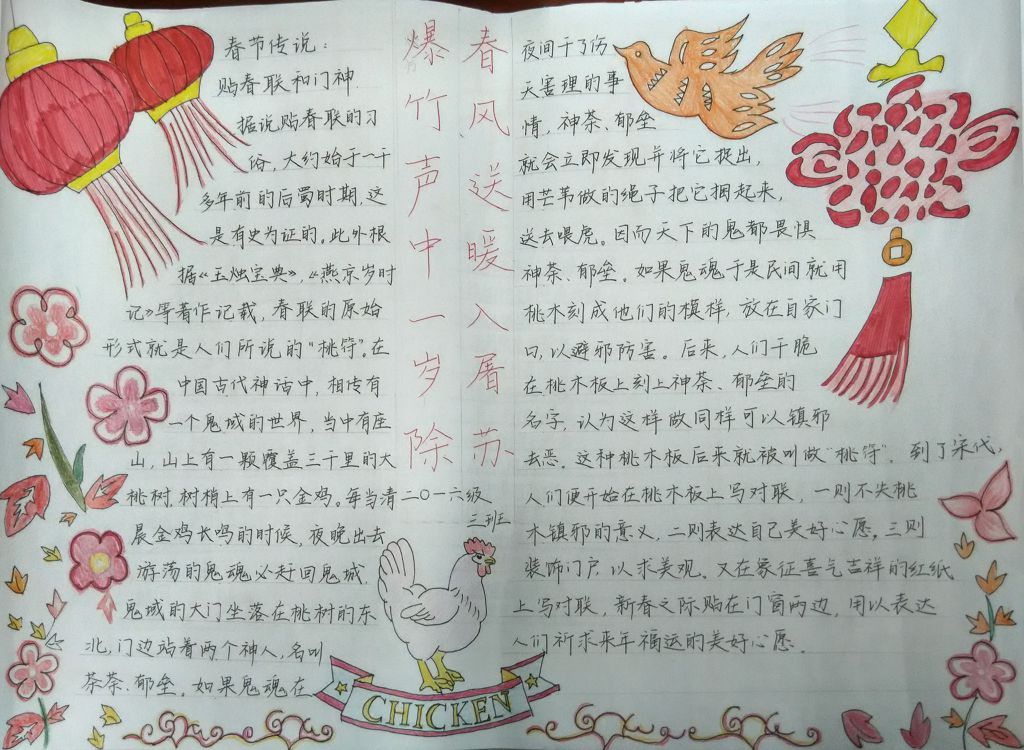 春节传说：
贴春联和门神
据说贴春联的习
俗，大约始于一千
多年前的后蜀时期，这
是有史为证的。此外根
据《玉烛宝典》，《燕京岁时
记》等著作记载，春联的原始
形式就是人们所说的“桃符”。在
中国古代神话中，相传有
一个鬼域的世界，当中有座
山，山上有一颗覆盖三千里的大
桃树，树梢上有一只金鸡。每当清
晨金鸡长鸣的时候，夜晚出去
游荡的鬼魂必赶回鬼域。
鬼域的大门坐落在桃树的东
北，门边站着两个神人，名叫
荼荼、郁垒。如果鬼魂在
爆竹声中一岁除
春风送暖入屠苏
二〇一六级
三班
CHICKEN
夜间干了伤
天害理的事
情，神荼、郁垒
就会立即发现并将它捉出，
用芒苇做的绳子把它捆起来，
送去喂虎。因而天下的鬼都畏惧
神荼、郁垒。如果鬼魂于是民间就用
桃木刻成他们的模样，放在自家门
口，以避邪防害。后来，人们干脆
在桃木板上刻上神荼、郁垒的
名字，认为这样做同样可以镇邪
去恶。这种桃木板后来就被叫做“桃符”。到了宋代，
人们便开始在桃木板上写对联，一则不失桃
木镇邪的意义，二则表达自己美好心愿。三则
装饰门户，以求美观。又在象征喜气吉祥的红纸
上写对联，新春之际贴在门窗两边，用以表达
人们祈求来年福运的美好心愿。